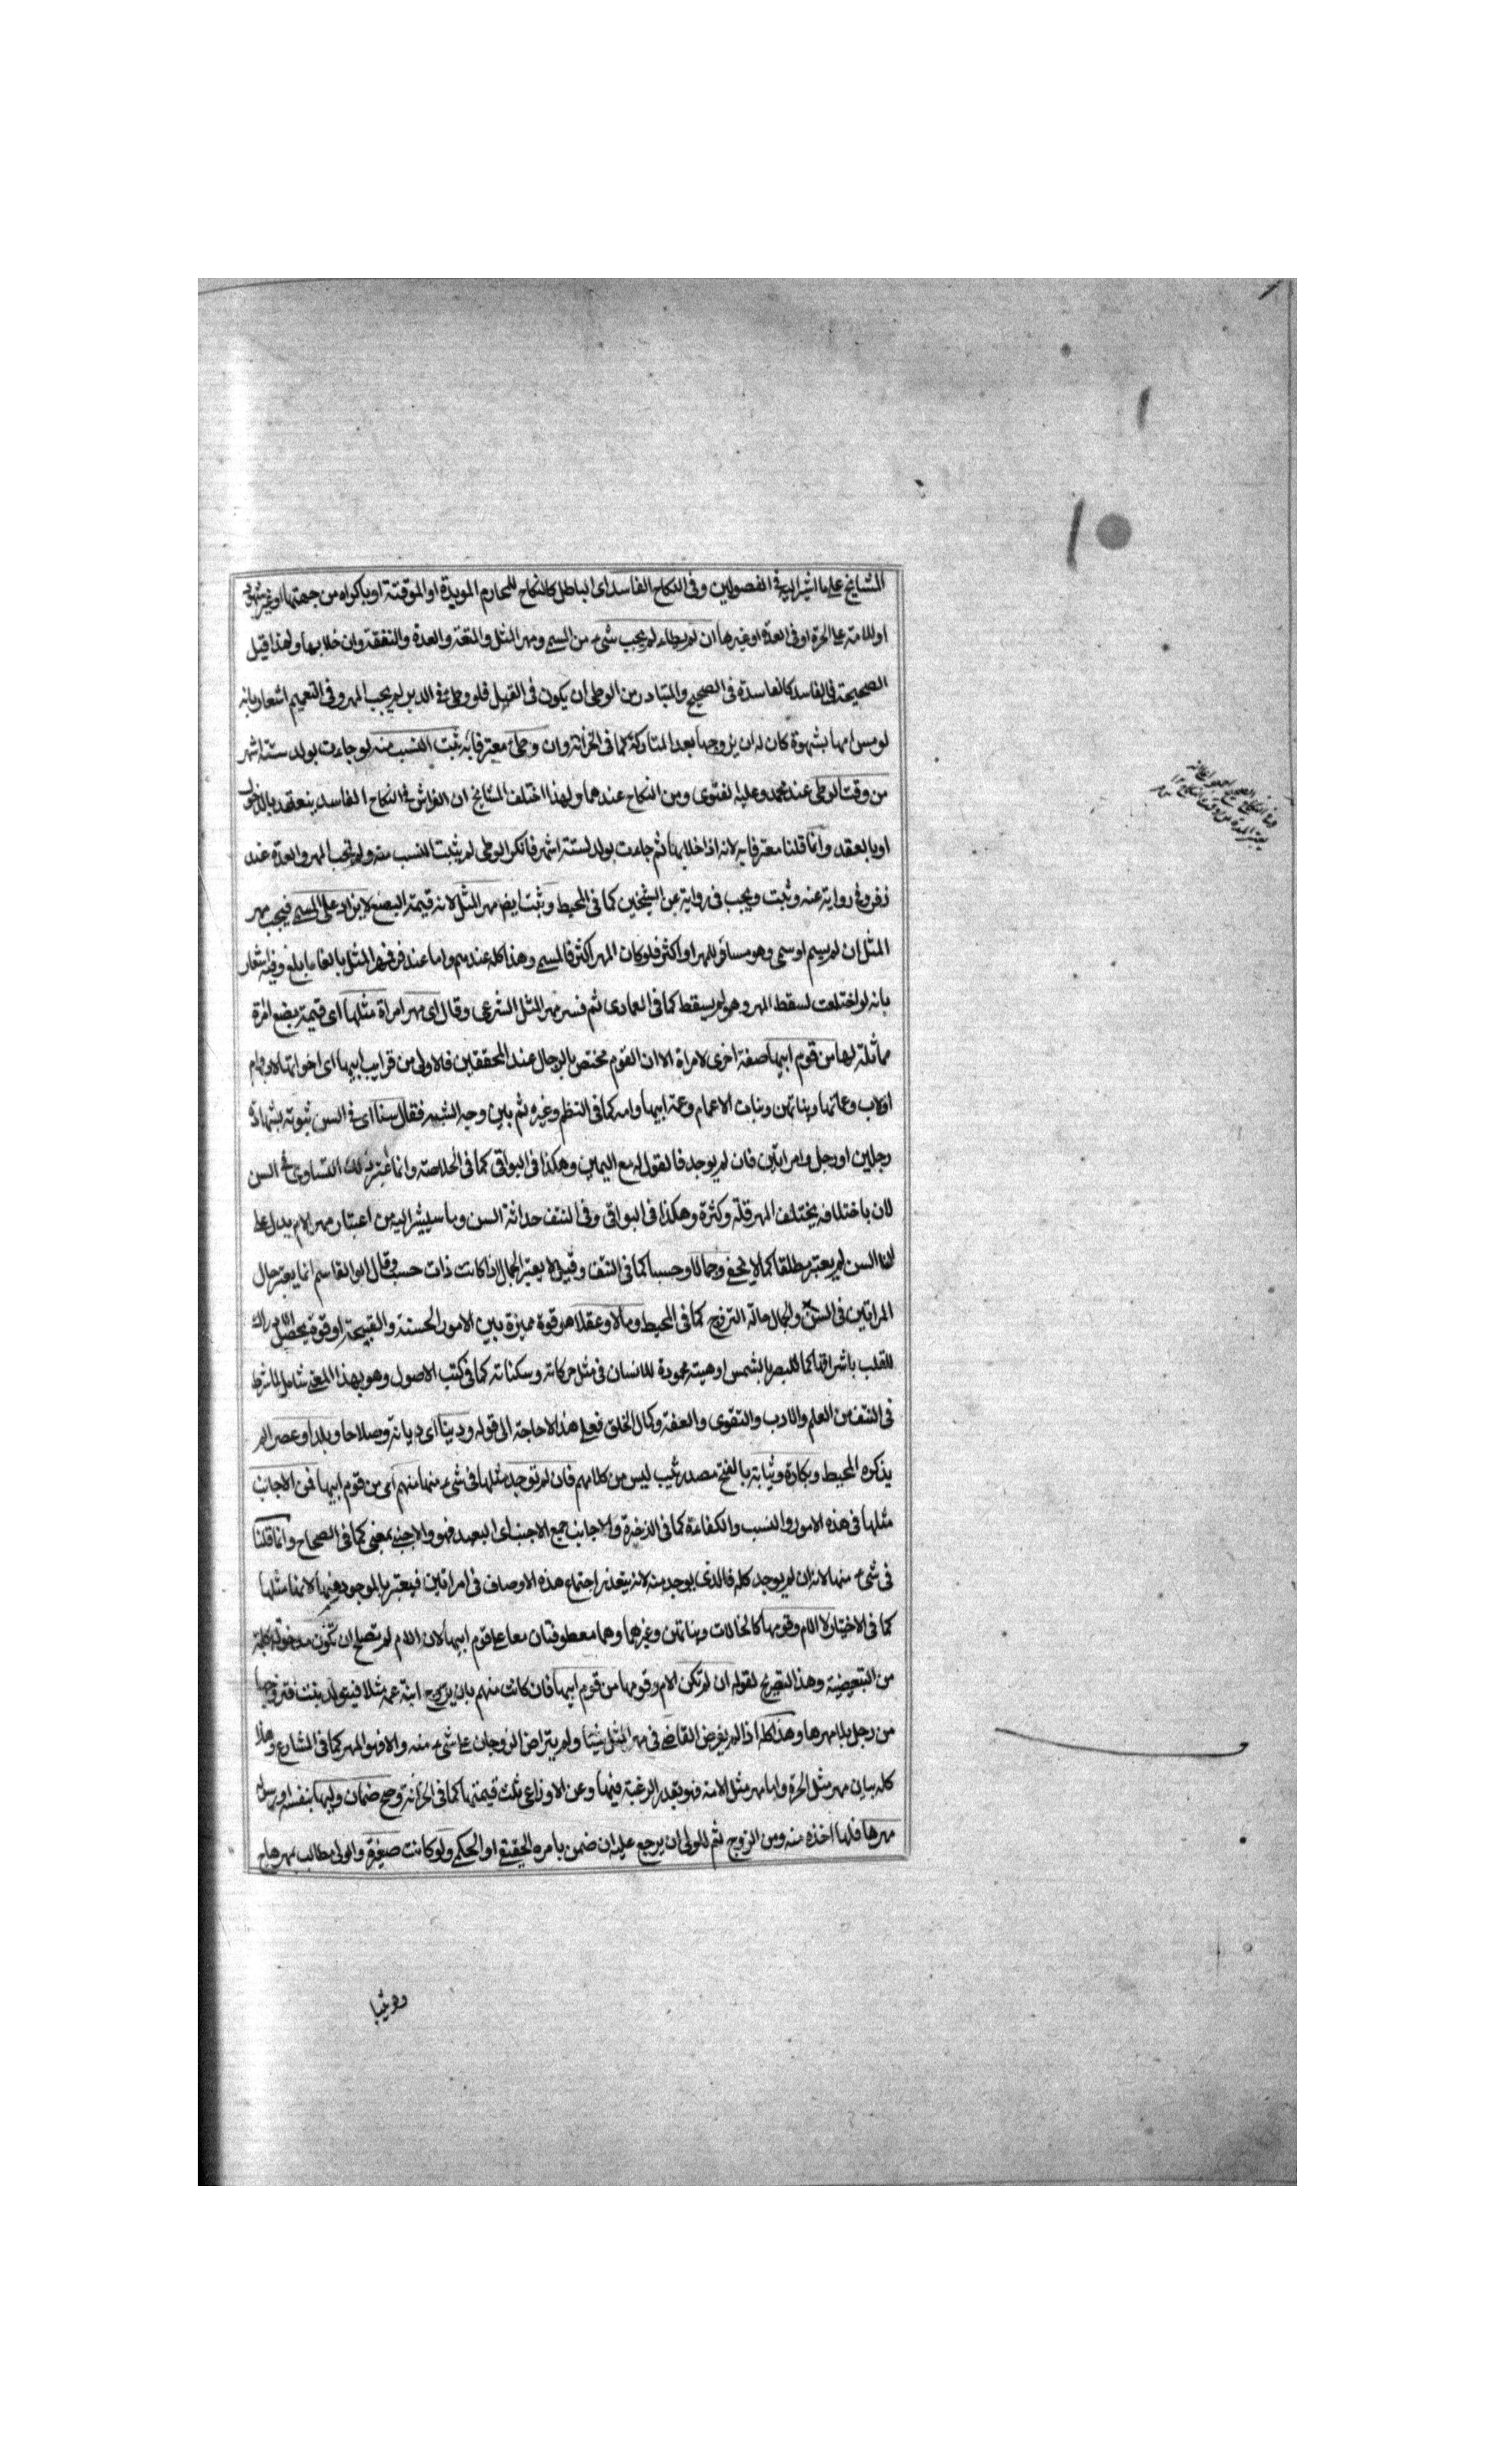 المشايخ على ما اشير اليه فى الفصولين وفى النكاح الفاسد اى الباطل كالنكاح للمحارم المويدة او الموقتة او باكراه من جهتها او بغير شهود
او للامة على الحرة او فى العدة او غيرها ان لم يطاء لم يجب شىء من المسمى ومهر المثل والمتعة والعدة والنفقة وان خلا بها ولهذا قيل
الصحيحة فى الفاسد كالفاسدة فى الصحيح والمتبادر من الوطى ان يكون فى القبل فلو وطى فى الدبر لم يجب المهر وفى التعميم اشعار بانه
لو مس امها بشهوة كان له ان يزوجها بعد المتاركة كما فى الخزانة وان وطى معترفا به ثبت النسب منه لو جاءت بولد ستة اشهر
من وقت الوطى عند محمد وعليه الفتوى ومن النكاح عندهما ولهذا اختلف المشايخ ان الفراش فى النكاح الفاسد ينعقد بالدخول
او بالعقد وانما قلنا معترفا به لانه اذا خلا بها ثم جاءت بولد لستة اشهر فانكر الوطى لم يثبت النسب منه ولم يجب المهر والعدة عند
زفر وفى رواية عنه وثبت ويجب فى رواية عن الشيخين كما فى المحيط وثبت ايضا مهر المثل لانه قيمة البضع لا يزاد على المسمى فيجب مهر
المثل ان لم يسم او سمى وهو مساو للمهر او اكثر فلو كان المهر اكثر فالمسمى وهذا كله عندهم واما عند زفر فمهر المثل بالغا ما بلغ وفيه اشعار
بانه لو اختلعت لسقط المهر وهو لم يسقط كما فى العمادى ثم فسر مهر المثل الشرعى وقال اى مهر امراة مثلها اى قيمة بضع امرة
مماثلة لها من قوم ابيها صفة اخرى لامراة الا ان القوم مختص بالرجال عند المحققين فالاولى من قرايب ابيها اى اخواتها لاب وام
او لاب وعماتها وبناتهن وبنات الاعمام وعمة ابيها وامه كما فى النظم وغيره ثم بين وجه الشبه فقال سنا اى فى السن ثبوته بشهادة
رجلين او رجل وامراتين فان لم يوجد فالقول له مع اليمين وهكذا فى البواقى كما فى الخلاصة وانما اعتبر ذلك التساوى فى السن
لان باختلافه يختلف المهر قلة وكثرة وهكذا فى البواقى وفى النتف حداثة السن وما سيشير اليه من اعتبار مهر الام يدل على
ان السن لم يعتبر مطلقا كما لا يخفى وجمالا وحسبا كما فى النتف وقيل لا يعتبر الجمال اذا كانت ذات حسب وقال ابو القاسم انما يعتبر حال
المراتين فى السن والجمال حالة التزوج كما فى المحيط ومالا وعقلا هو قوة مميزة بين الامور الحسنة والقبيحة او قوة يحصل الادراك
للقلب باشراقها كما للبصر بالشمس او هيئة محمودة للانسان فى مثل حركاته وسكناته كما فى كتب الاصول وهو بهذا المعنى شامل لما شرط
فى النتف من العلم والادب والتقوى والعفة وكمال الخلق فعلى هذا لا حاجة الى قوله ودينا اى ديانة وصلاحا وبلدا وعصرا لم
يذكره المحيط وبكارة وثيابة بالفتح مصدر ثيب ليس من كلامهم فان لم توجد مثلها فى شىء منها منهم اى من قوم ابيها فمن الاجانب
مثلها فى هذه الامور والنسب والكفاءة كما فى الذخيرة والاجانب جمع الاجنب اى البعيد فهو والاجنبى بمعنى كما فى الصحاح وانما قلنا
فى شىء منها لانه ان لم يوجد كله فالذى يوجد منه لانه يتعذر اجتماع هذه الاوصاف فى امراتين فيعتبر بالموجود فيها لانها مثلها
كما فى الاختيار لا الام وقومها كالخالات وبناتهن وغيرهما وهما معطوفتان معا على قوم ابيها لان الام لم تصلح ان تكون مدخولة كلمة
من التبعيضية وهذا التصريح لقوله ان لم تكن الام وقومها من قوم ابيها فان كانت منهم بان يزوج ابنة عمه مثلا فيتولد بنت فتزوجها
من رجل بلا مهرها وهذا كله اذا لم يفرض القاضى فى مهر المثل شيئا ولم يتراض الزوجان على شىء منه والا فهو المهر كما فى المشارع وهذا
كله بيان مهر مثل الحرة واما مهر مثل الامة فهو بقدر الرغبة فيها وعن الاوزاعى ثلث قيمتها كما فى الخزانة وصح ضمان وليها بنفسه او رسوله
مهرها فلها اخذه منه ومن الزوج ثم للولى ان يرجع عليه ان ضمن بامره الحقيقى او الحكمى ولو كانت صغيرة والولى مطالب بمهرها